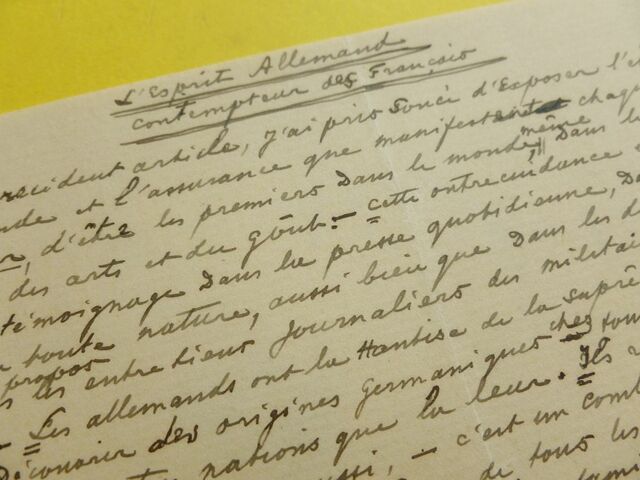 L'Esprit Allemand
contempteur des Français
précédent article, j'ai pris souci d'Exposer l'e
nde et l'assurance que manifestent chaque
r, d'être les premiers Dans le monde, même Dans le
des arts et du Goût. — Cette outrecuidance
témoignage Dans la presse quotidienne, Da
toute nature, aussi bien que Dans les d
propos
les entretiens Journaliers des militai
— Les allemands ont la Hantise de la Suprê
Découvrir des origines Germaniques chez tou
nations que la leur. Ils
— c'est un comb
de tous les